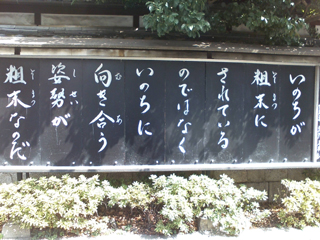 いのちが
粗末に
されている
のではなく
いのちに
向き合う
姿勢が
粗末なのだ